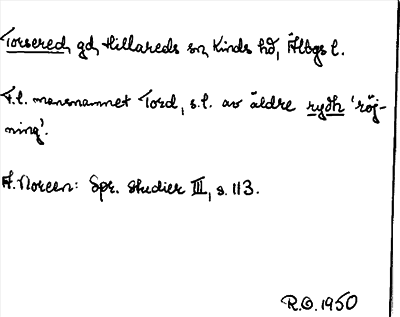 Torsered, gd, Hillareds sn, Kinds hd, Älvbgs l.
F.l. mansnamnet Tord, s.l. av äldre rydh 'röj-
ning'.
A. Noreen: Spr. studier III, s. 113.
R.O. 1950